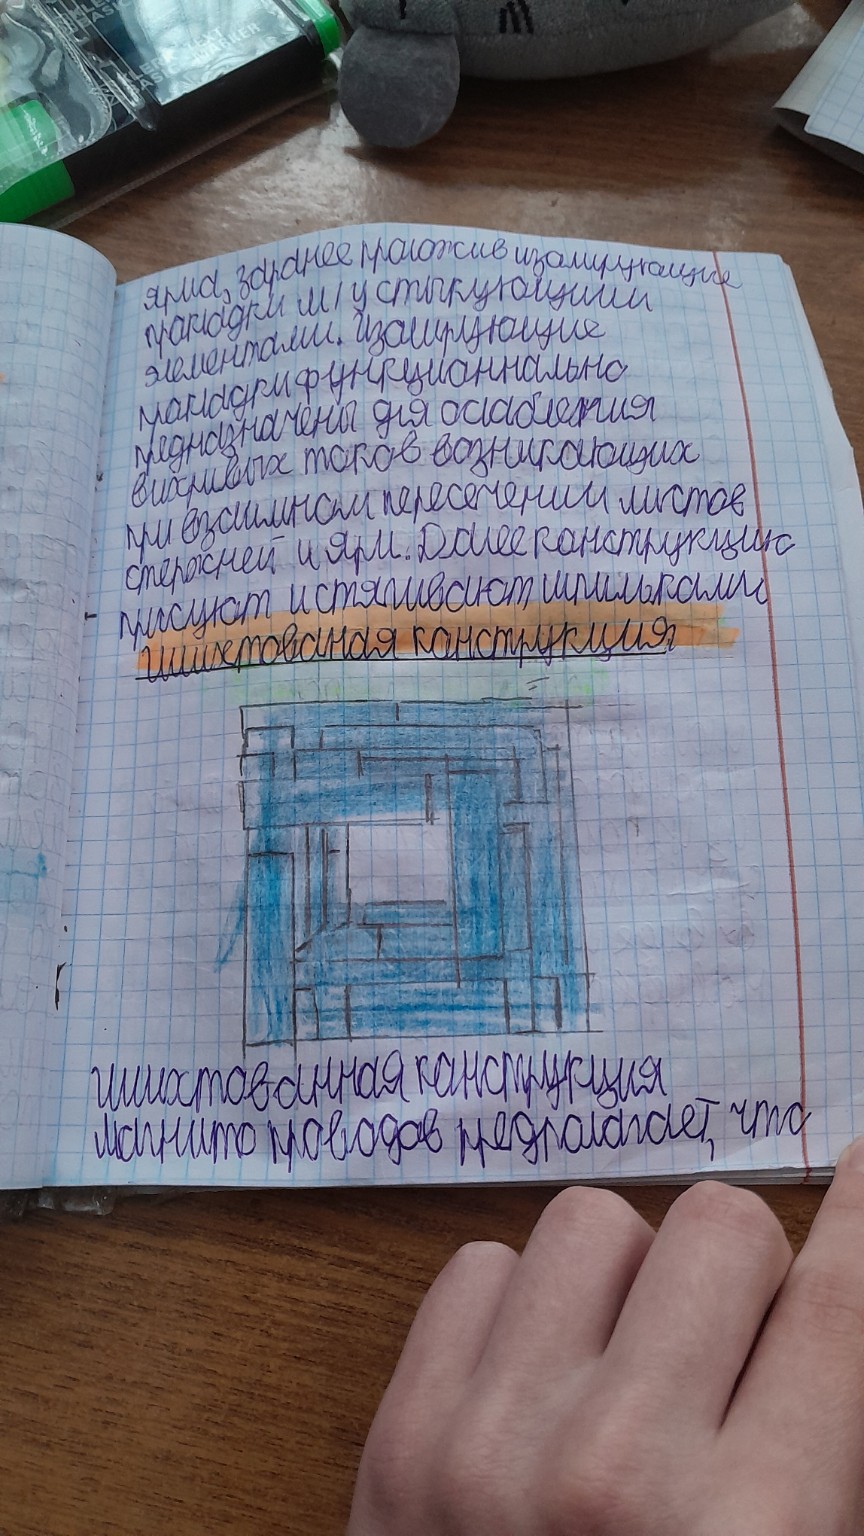 KLERK TEXT
BASIC MARKER
ярма, заранее проложив изолирующие
прокладки м/у стыкующими
элементами. Изолирующие
прокладки функционнально
предназначены для ослабления
вихривых токов возникающих
при взаимном пересечении листов
стержней и ярм. Далее конструкцию
присуют и стягивают шпильками
шихтованая конструкция
Шихтованная конструкция
магнито проводов предпологает, что